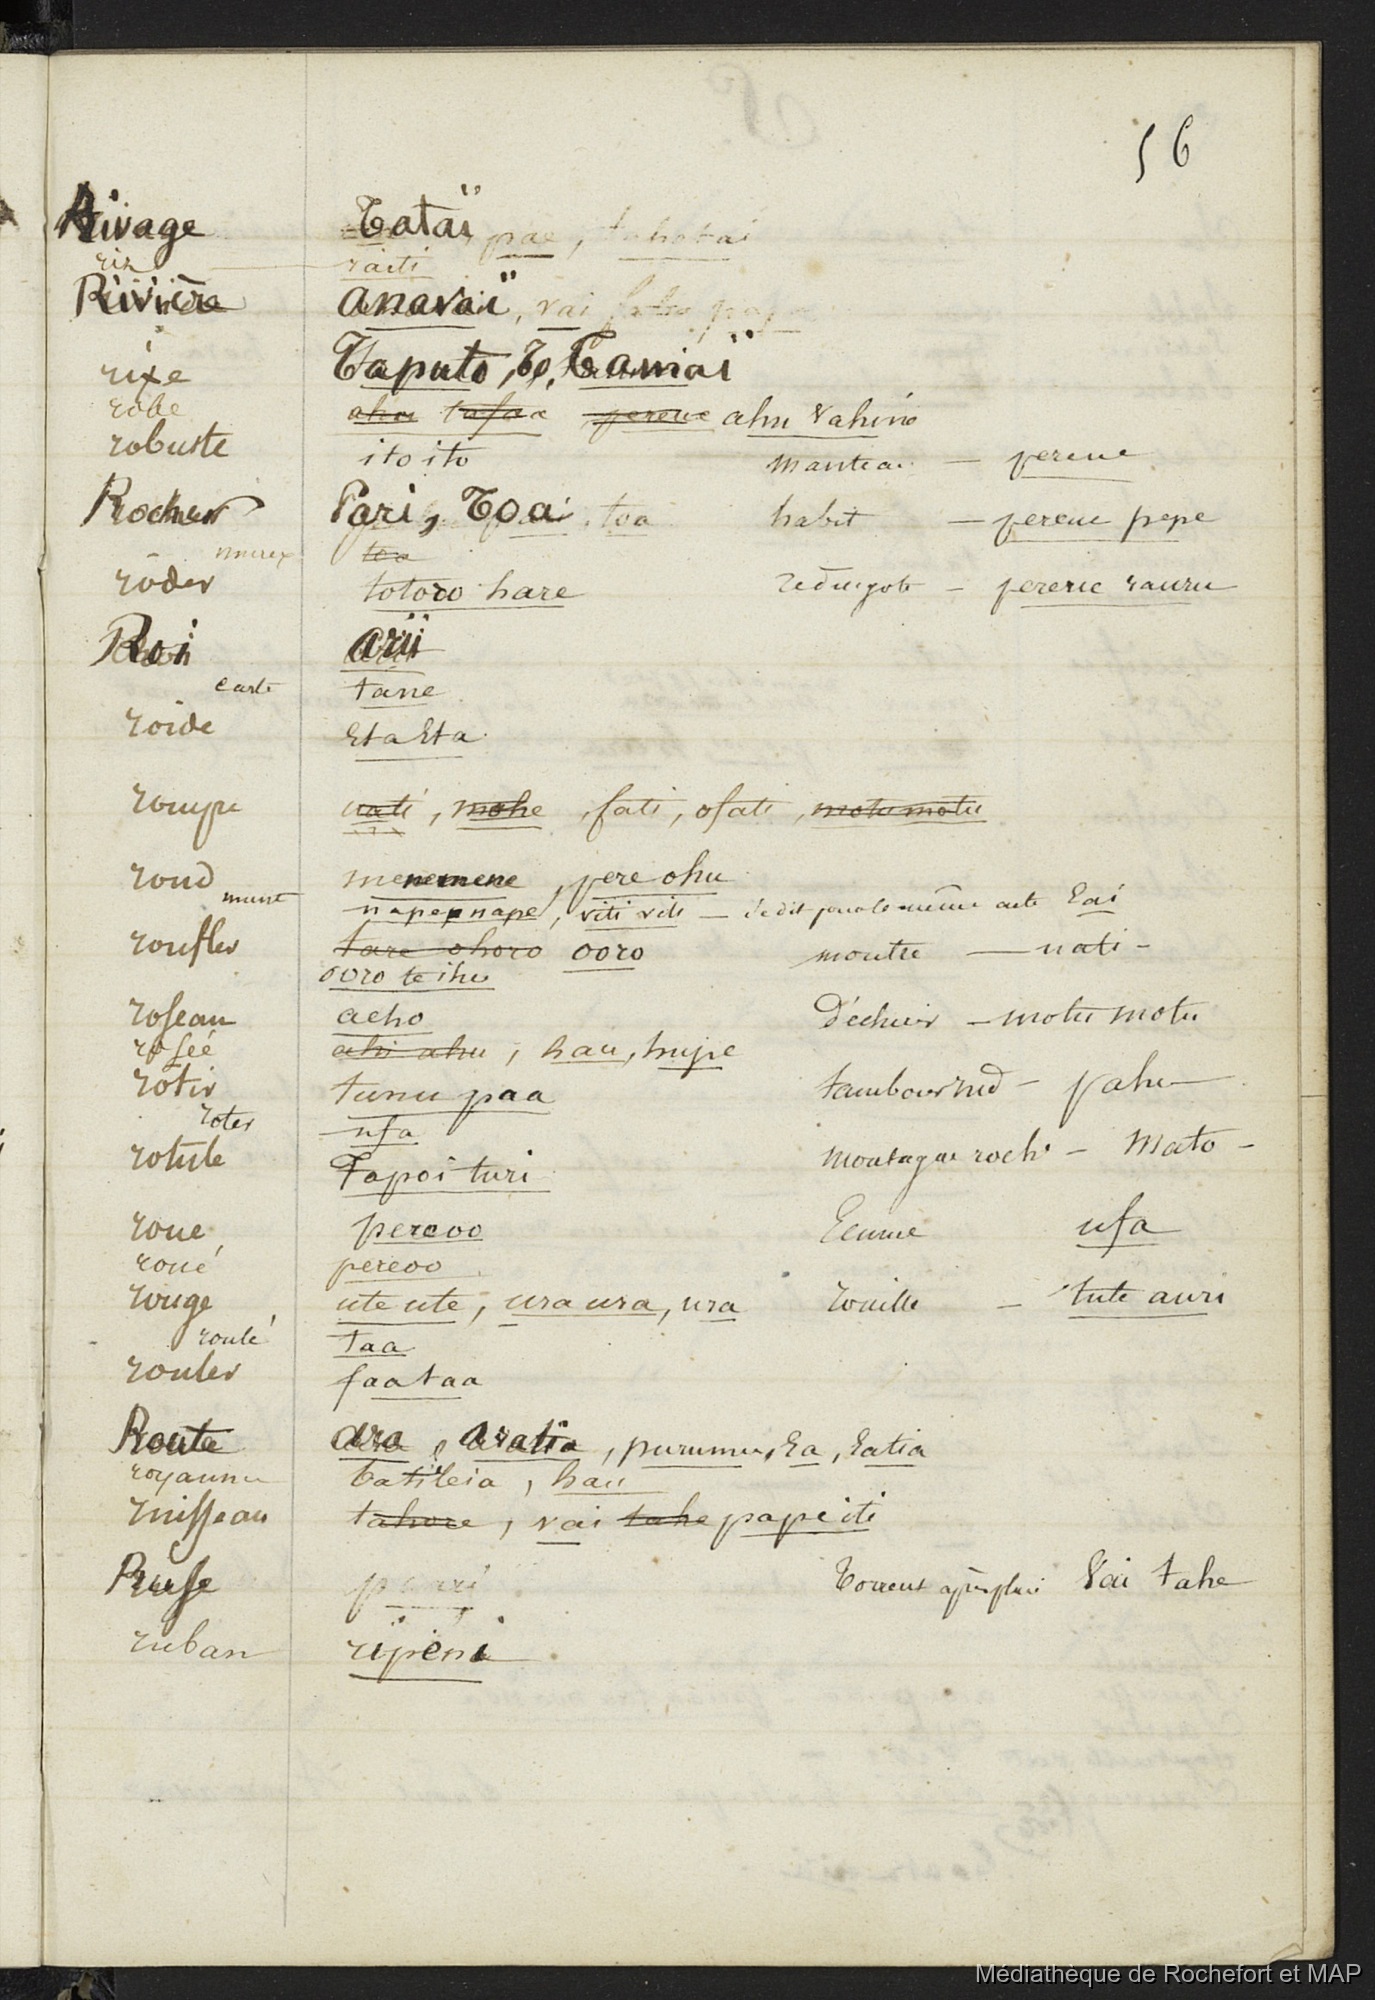 56
Rivage Tataï, pae, tahatai
riz raiti
Rivière anavaï, vai
rixe Taputo, Te Tamaï
robe ahu tafaa pereue ahu vahine
robuste itoito manteau — pereue
Rocher Pari, Toai, toa habit — pereue pepe
murex toa
roder totoro hare redingote — pereue rauru
Roi arii
carte tane
roide etaeta
rompre uati, mohe, fati, ofati, motumotu
rond menemene, pere ohu
napenape, viti viti — se dit pour le même acte Eai
ronfler tare ohoro ooro montre — uati —
ooro te ihu
roseau aeho déchirer — motu motu
rosée ahi ahu, hau, hupe
rotir tunu paa tambour rud — pahu —
roter ufa
rotule Tapoi turi montagne roche — Mato —
roue pereoo femme ufa
roué pereoo
rouge uteute, uraura, ura rouille — tute auri
roulé taa
rouler faataa
Route ara, aratia, purumu, ea, eatia
royaume Batileia, hau
ruisseau tahore, vai tahe pape iti
Ruse Torrent après pluie Vai tahe
ruban ripene
Médiathèque de Rochefort et MAP